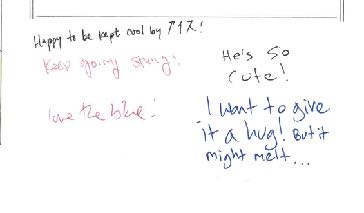 Happy to be kept cool by アイス!
Keep going strong!
Love the blue!
He's so
cute!
I want to give
it a hug! But it
might melt...